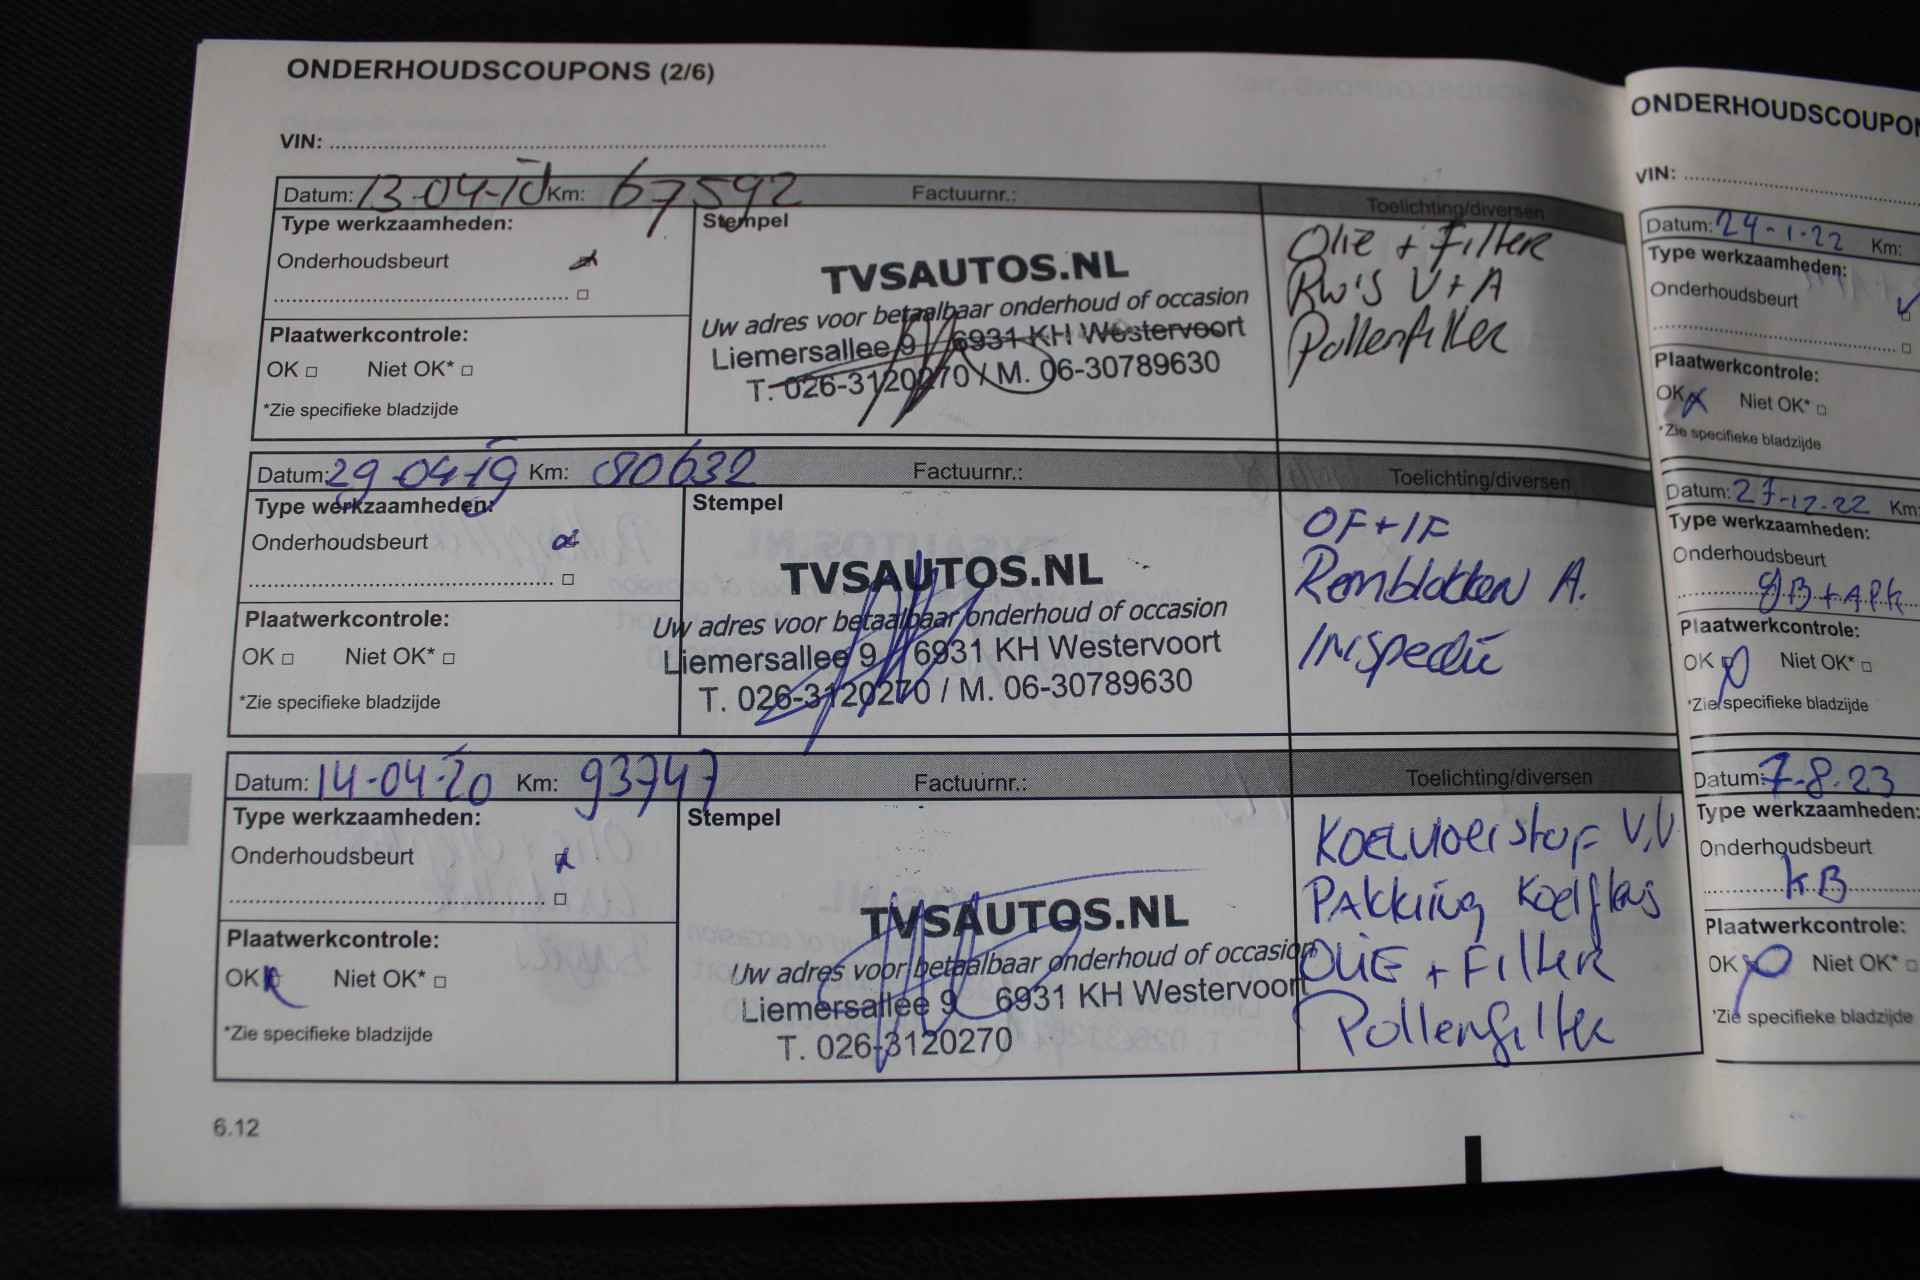 ONDERHOUDSCOUPONS (2/6)
VIN:
Datum: 13-04-18 Km: 67592 Factuurnr.: Toelichting/diversen
Type werkzaamheden:
Onderhoudsbeurt
Stempel
TVSAUTOS.NL
Uw adres voor betaalbaar onderhoud of occasion
Liemersallee 9 6931 KH Westervoort
T. 026-3120270 / M. 06-30789630
Olie + Filter
RW'S V+A
Pollenfilter
Plaatwerkcontrole:
OK Niet OK*
*Zie specifieke bladzijde
Datum: 29-04-19 Km: 80632 Factuurnr.: Toelichting/diversen
Type werkzaamheden:
Onderhoudsbeurt
Stempel
TVSAUTOS.NL
Uw adres voor betaalbaar onderhoud of occasion
Liemersallee 9 6931 KH Westervoort
T. 026-3120270 / M. 06-30789630
OF+IF
Remblokken A.
Inspectie
Plaatwerkcontrole:
OK Niet OK*
*Zie specifieke bladzijde
Datum: 14-04-20 Km: 93747 Factuurnr.: Toelichting/diversen
Type werkzaamheden:
Onderhoudsbeurt
Stempel
TVSAUTOS.NL
Uw adres voor betaalbaar onderhoud of occasion
Liemersallee 9 6931 KH Westervoort
T. 026-3120270
Koelvloeistof V.V
Pakking Koelfles
Olie + Filter
Pollenfilter
Plaatwerkcontrole:
OK Niet OK*
*Zie specifieke bladzijde
6.12
ONDERHOUDSCOUPON
VIN:
Datum: 24-1-22 Km:
Type werkzaamheden:
Onderhoudsbeurt
Plaatwerkcontrole:
OK Niet OK*
*Zie specifieke bladzijde
Datum: 27-12-22 Km:
Type werkzaamheden:
Onderhoudsbeurt
GB + APK
Plaatwerkcontrole:
OK Niet OK*
*Zie specifieke bladzijde
Datum: 7-8-23
Type werkzaamheden:
Onderhoudsbeurt
KB
Plaatwerkcontrole:
OK Niet OK*
*Zie specifieke bladzijde